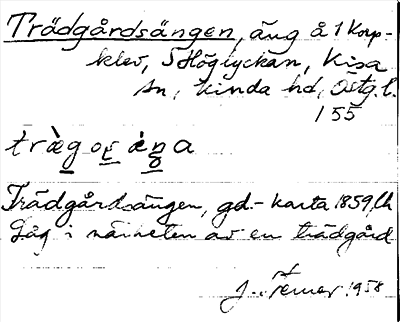 Trädgårdsängen, äng å 1 Korp-
klev, S Höglyckan, Kisa
sn, Kinda hd, Östg. l.
155
Trädgårdsängen, gd.-karta 1859, Lh
Låg i närheten av en trädgård
1958